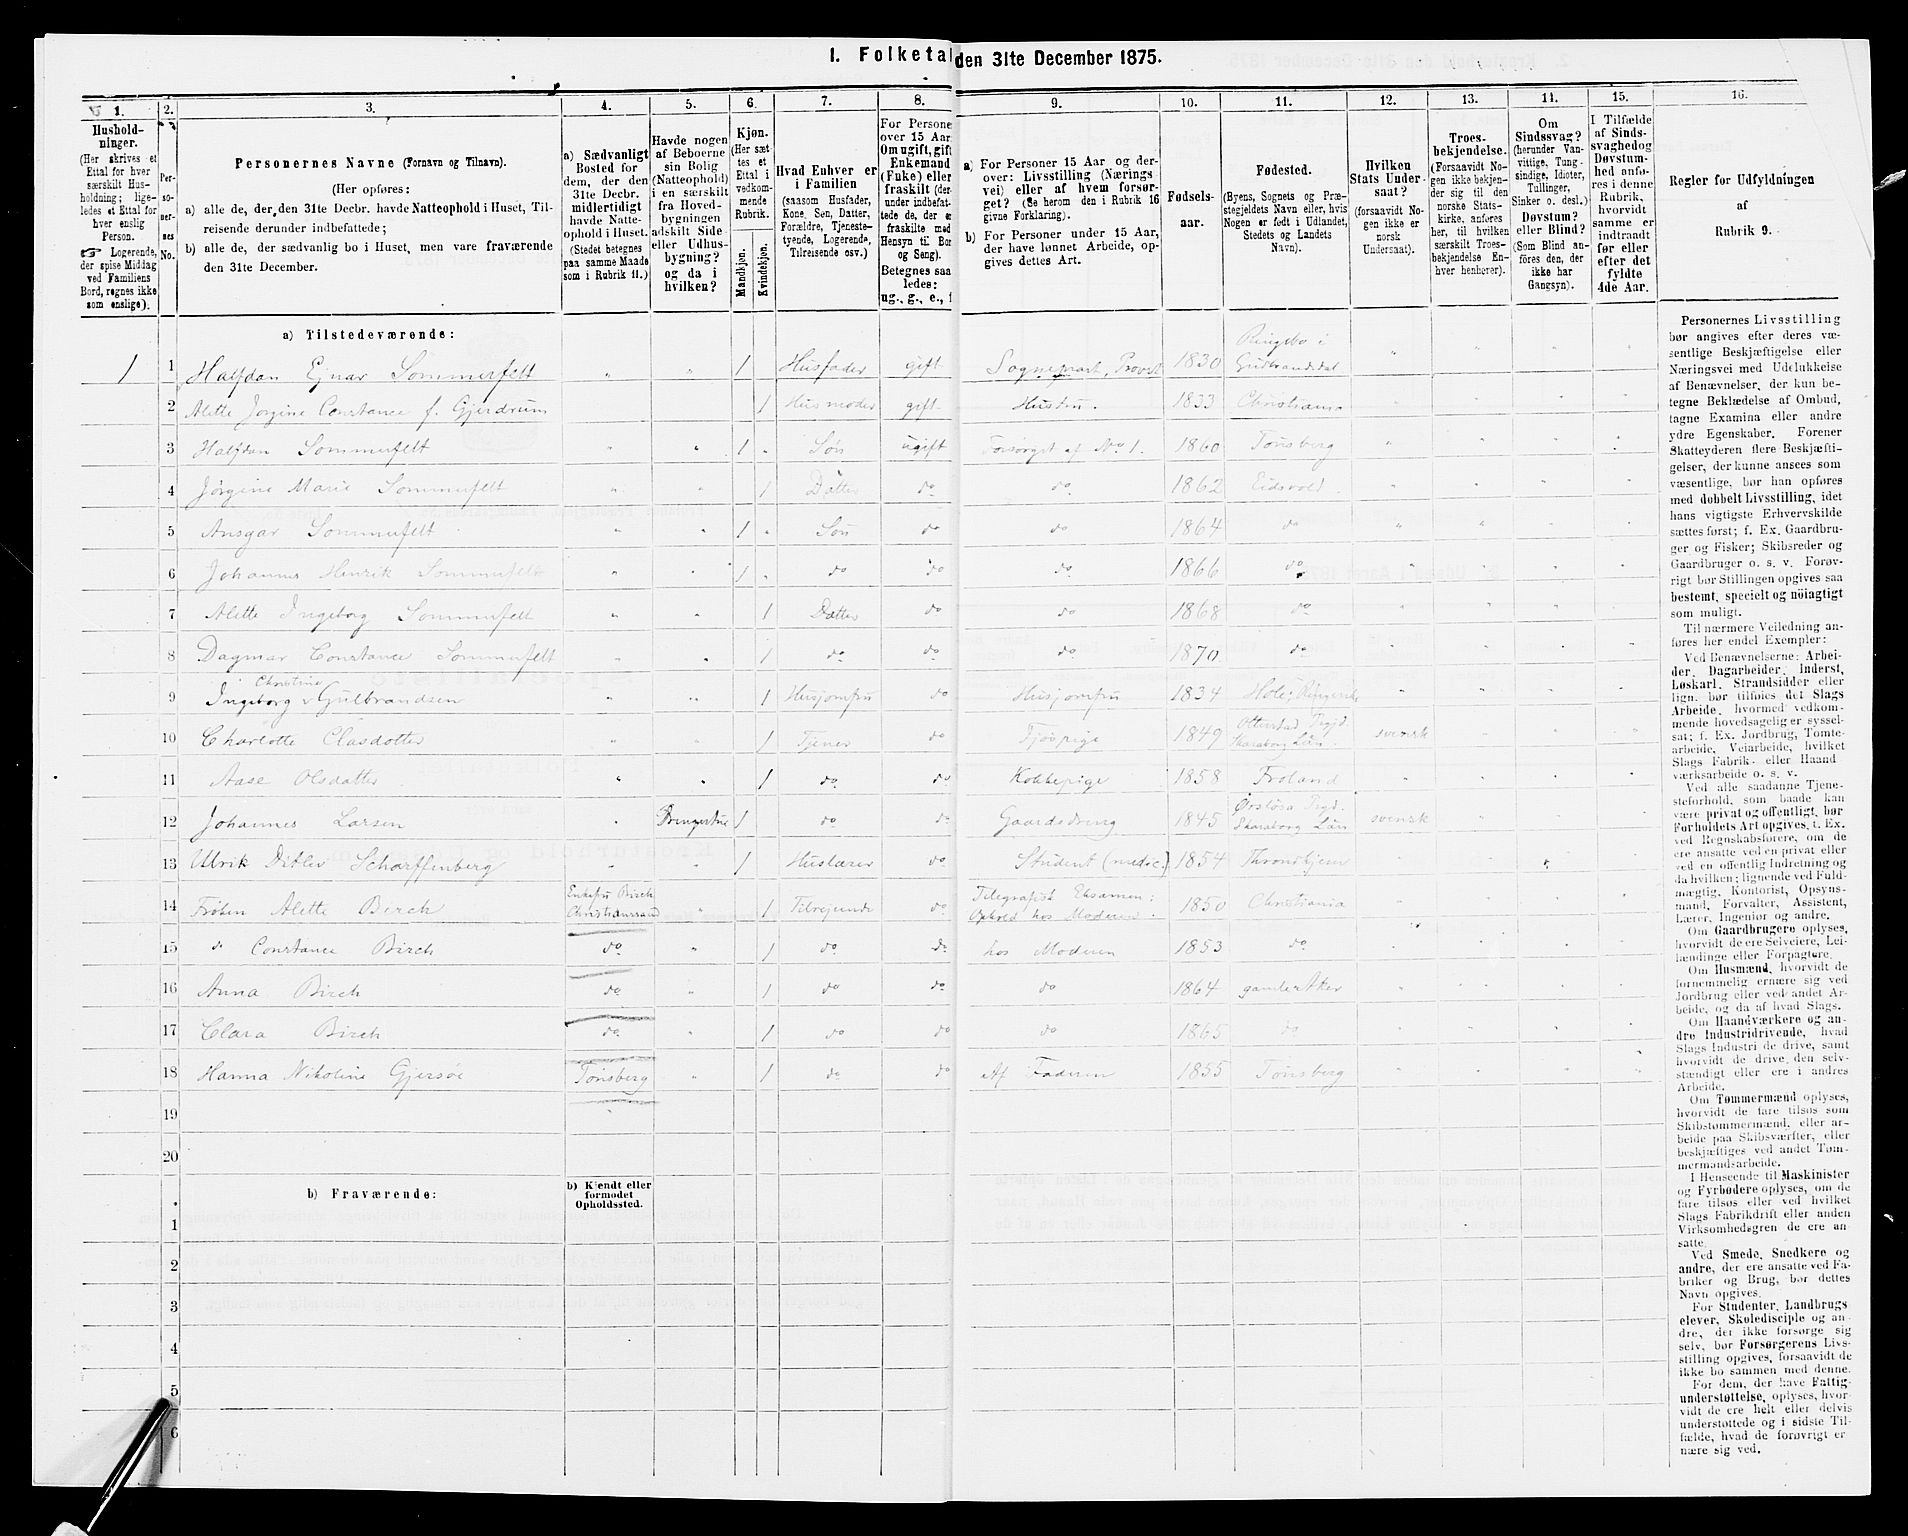 1. Folketal den 31te December 1875.
1. 2. 3. 4. 5. 6. 7. 8. 9. 10. 11. 12. 13. 14. 15. 16.
Hushold-
ninger.
(Her skrives et
Ettal for hver
særskilt Hus-
holdning; lige-
ledes et Ettal for
hver enslig
Person.
☞ Logerende,
der spise Middag
ved Familiens
Bord, regnes ikke
som enslige).
Per-
so-
ner-
nes
No.
Personernes Navne (Fornavn og Tilnavn).
(Her opføres:
a) alle de, der den 31te Decbr. havde Natteophold i Huset, Til-
reisende derunder indbefattede;
b) alle de, der sædvanlig bo i Huset, men vare fraværende
den 31te December.
a) Sædvanligt
Bosted for
dem, der den
31te Decbr.
midlertidigt
havde Natte-
ophold i Huset.
(Stedet betegnes
paa samme Maade
som i Rubrik 11.)
Havde nogen
af Beboerne
sin Bolig
(Natteophold)
i en særskilt
fra Hoved-
bygningen
adskilt Side
eller Udhus-
bygning?
og da i
hvilken?
Kjøn.
(Her sæt-
tes et
Ettal i
vedkom-
mende
Rubrik.
Mandkjøn.
Kvindekjøn.
Hvad Enhver er
i Familien
(saasom Husfader,
Kone, Søn, Datter,
Forældre, Tjeneste-
tyende, Logerende,
Tilreisende osv.)
For Persone
over 15 Aar
Om ugift, gift
Enkemand
(Enke) eller
fraskilt (der-
under indbefat-
tede de, der e
fraskilte med
Hensyn til Bor
og Seng).
Betegnes saa
ledes:
ug., g., e., f
a) For Personer 15 Aar og der-
over: Livsstilling (Nærings
vei) eller af hvem forsør-
get? (Se herom den i Rubrik 16
givne Forklaring).
b) For Personer under 15 Aar,
der have lønnet Arbeide, op-
gives dettes Art.
Fødsels-
aar.
Fødested.
(Byens, Sognets og Præ-
stegjeldets Navn eller, hvis
Nogen er født i Udlandet,
Stedets og Landets
Navn).
Hvilken
Stats Under-
saat?
(forsaavidt No-
gen ikke er
norsk
Undersaat).
Troes-
bekjendelse.
(Forsaavidt No-
gen ikke bekjen-
der sig til den
norske Stats-
kirke, anføres
her, til hvilken
særskilt Troes-
bekjendelse En-
hver henhører).
Om
Sindssvag?
(herunder Van-
vittige, Tung-
sindige, Idioter,
Tullinger,
Sinker o. desl.)
Døvstum?
eller Blind?
(Som Blind an-
føres den, der
ikke har
Gangsyn).
I Tilfælde
af Sinds-
svaghed og
Døvstum-
hed anfø-
res i denne
Rubrik,
hvorvidt
samme er
indtraadt
før eller
efter det
fyldte
4de Aar.
Regler for Udfyldningen
af
Rubrik 9.
a) Tilstedeværende:
1 1 Halfdan Ejnar Sommerfelt " " 1 Husfader gift Sognepræst, Provst 1830 Ringebo i Gudbrandsdal
2 Alette Jørgine Constance f. Gjerdrum 1 Husmoder gift Hustru. 1833 Christiania
3 Halfdan Sommerfelt " " 1 Søn ugift Forsørget af No 1. 1860 Tønsberg
4 Jørgine Marie Sommerfelt " " 1 Datter do do 1862 Eidsvold
5 Ansgar Sommerfelt " " 1 Søn do do 1864 do
6 Johannes Henrik Sommerfelt " " 1 do do do 1866 do
7 Alette Ingeborg Sommerfelt " " 1 Datter do do 1868 do
8 Dagmar Constance Sommerfelt " " 1 do do do 1870 do
9 Ingeborg Christine Gulbrandsen " " 1 Husjomfru do Husjomfru 1834 Hole, Ringerike
10 Charlotte Clasdotter " " 1 Tjener do 1849 Otterstad Pgjd. Skaraborg Län. svensk
11 Aase Olsdatter " " 1 do do Kokkepige 1858 Froland
12 Johannes Larsen " Drengestue 1 do do Gaardsdreng 1845 Pgjd. Skaraborg Län svensk
13 Ulrik Ditlev Scharffenberg " " 1 Huslærer do Student (medic.) 1854 Throndhjem
14 Frøken Alette Birch Enkefru Birch Christianssand " 1 Tilreisende do Telegrafist Eksamen; Ophold hos Moderen. 1850 Christiania
15 do Constance Birch do " 1 do do hos Moderen 1853 do
16 Anna Birch do " 1 do do do 1864 gamle Aker
17 Clara Birch do " 1 do do do 1865 do
18 Hanna Nikoline Gjersøe Tønsberg " 1 do do Af Faderen 1855 Tønsberg
19
20
b) Fraværende:
b) Kjendt eller
formodet
Opholdssted.
1
2
3
4
5
6
Personernes Livsstilling
bør angives efter deres væ-
sentlige Beskjæftigelse eller
Næringsvei med Udelukkelse
af Benævnelser, der kun be-
tegne Beklædelse af Ombud,
tagne Examina eller andre
ydre Egenskaber. Forener
Skatteyderen flere Beskjæfti-
gelser, der kunne ansees som
væsentlige, bør han opføres
med dobbelt Livsstilling, idet
hans vigtigste Erhvervskilde
sættes først; f. Ex. Gaardbru-
ger og Fisker; Skibsreder og
Gaardbruger o. s. v. Forøv-
rigt bør Stillingen opgives saa
bestemt, specielt og nöiagtigt
som muligt.
Til nærmere Veiledning an-
føres her endel Exempler:
Ved Benævnelserne: Arbei-
der, Dagarbeider, Inderst,
Løskarl, Strandsidder eller
lign. bør tilføies det Slags
Arbeide, hvormed vedkom-
mende hovedsagelig er syssel-
sat; f. Ex. Jordbrug, Tomte-
arbeide, Veiarbeide, hvilket
Slags Fabrik- eller Haand
værksarbeide o. s. v.
Ved alle saadanne Tjene-
steforhold, som baade kan
være privat og offentligt, bør
Forholdets Art opgives, t. Ex.
ved Regnskabsførere, om de
ere ansatte ved en privat eller
ved en offentlig Indretning og
da hvilken; lignende ved Fuld-
mægtig, Kontorist, Opsyns-
mand, Forvalter, Assistent,
Lærer, Ingeniør og andre.
Om Gaardbrugere oplyses,
hvorvidt de ere Selveiere, Lei-
lændinge eller Forpagtere.
Om Husmænd, hvorvidt de
fornemmelig ernære sig ved
Jordbrug eller ved andet Ar-
beide, og da af hvad Slags.
Om Haandværkere og an-
dre Industridrivende, hvad
Slags Industri de drive, samt
hvorvidt de drive den selv-
stændigt eller ere i andres
Arbeide.
Om Tømmermænd oplyses,
hvorvidt de fare tilsøs som
Skibstømmermænd, eller ar-
beide paa Skibsværfter, eller
beskjæftiges ved andet Tøm-
mermandsarbeide.
I Henseende til Maskinister
og Fyrbødere oplyses, om de
fare tilsøs eller ved hvilket
Slags Fabrikdrift eller anden
Virksomhedsgren de ere an-
satte.
Ved Smede, Snedkere og
andre, der ere ansatte ved Fa-
briker og Brug, bør dettes
Navn opgives.
For Studenter, Landbrugs
elever, Skoledisciple og an-
dre, der ikke forsørge sig
selv, bør Forsørgerens Livs-
stilling opgives, forsaavidt de
ikke bo sammen med denne.
For dem, der have Fattig-
understøttelse, oplyses, hvor-
vidt de ere helt eller delvis
understøttede og i sidste Til-
fælde, hvad de forøvrigt er
nære sig ved.